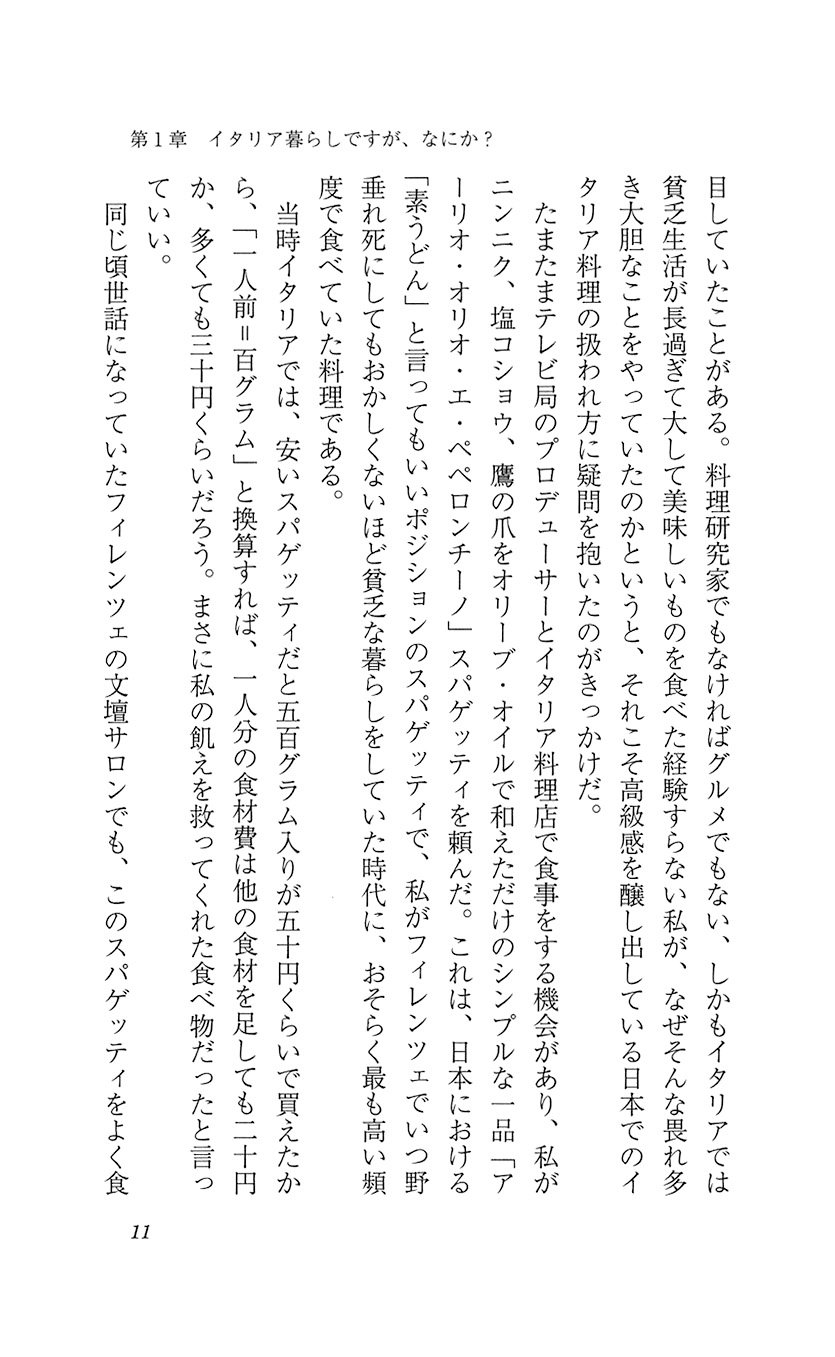 第１章　イタリア暮らしですが、なにか？
目していたことがある。料理研究家でもなければグルメでもない、しかもイタリアでは
貧乏生活が長過ぎて大して美味しいものを食べた経験すらない私が、なぜそんな畏れ多
き大胆なことをやっていたのかというと、それこそ高級感を醸し出している日本でのイ
タリア料理の扱われ方に疑問を抱いたのがきっかけだ。
　たまたまテレビ局のプロデューサーとイタリア料理店で食事をする機会があり、私が
ニンニク、塩コショウ、鷹の爪をオリーブ・オイルで和えただけのシンプルな一品「ア
ーリオ・オリオ・エ・ペペロンチーノ」スパゲッティを頼んだ。これは、日本における
「素うどん」と言ってもいいポジションのスパゲッティで、私がフィレンツェでいつ野
垂れ死にしてもおかしくないほど貧乏な暮らしをしていた時代に、おそらく最も高い頻
度で食べていた料理である。
　当時イタリアでは、安いスパゲッティだと五百グラム入りが五十円くらいで買えたか
ら、「一人前＝百グラム」と換算すれば、一人分の食材費は他の食材を足しても二十円
か、多くても三十円くらいだろう。まさに私の飢えを救ってくれた食べ物だったと言っ
ていい。
　同じ頃世話になっていたフィレンツェの文壇サロンでも、このスパゲッティをよく食
11